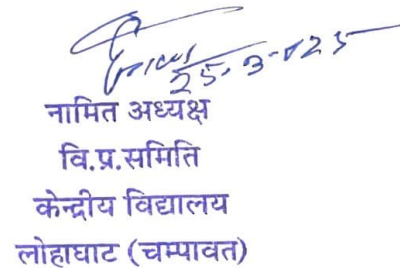 25.3.025
नामित अध्यक्ष
वि.प्र.समिति
केन्द्रीय विद्यालय
लोहाघाट (चम्पावत)